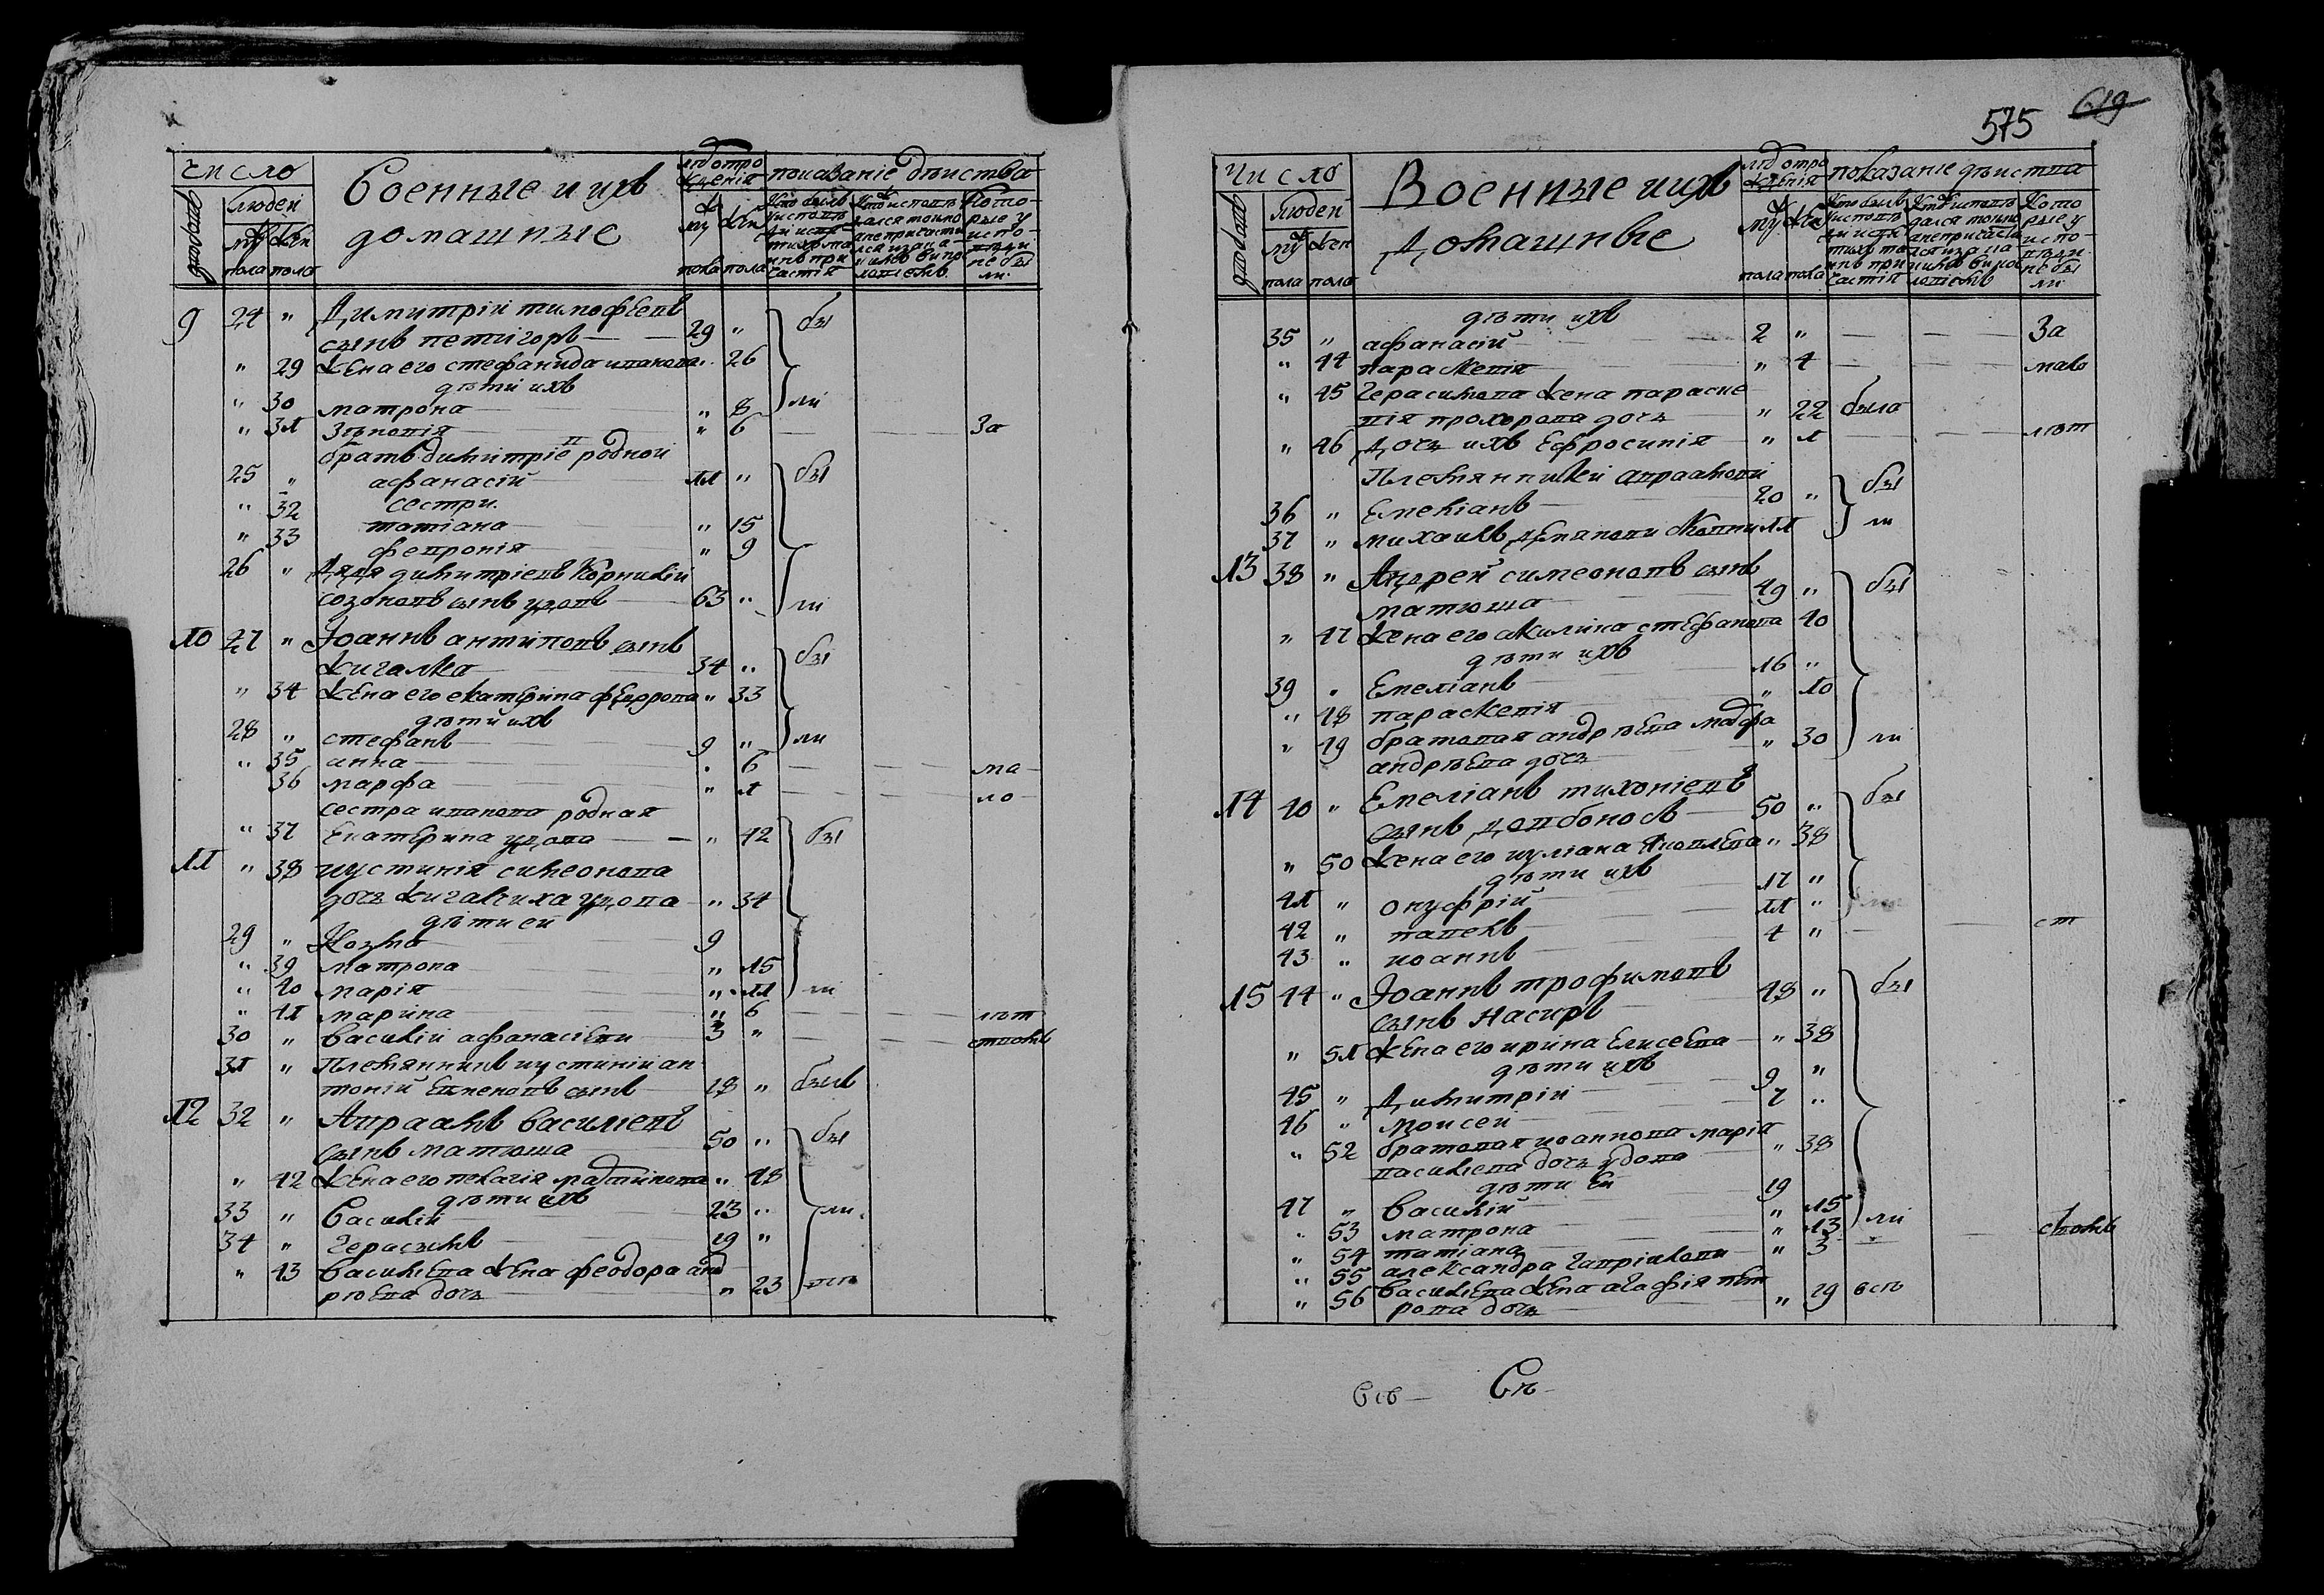 число
Военные и ихъ
домашные
лѣт от ро
жденія
показаніе дѣйства
дворовъ
людей
му жен
пола пола
му жен
пола пола
9 24 " Димитрій тимофеевъ
сынъ петигоръ — 29 " бы
" 29 жена его стефанида иванова " 26
дѣти ихъ
" 30 матрона " 8 ли
" 31 Зѣновія " 6 — — За
братъ димитріев родной
25 " афанасій 11 " бы
сестри
" 32 татіана " 15
" 33 феvронія " 9
26 " Дядя димитріевъ Корнилій
созоновъ сынъ удовъ 63 " ли
10 27 " Іоаннъ антиповъ сынъ
жигалка 34 " бы
" 34 жена его екатерина федорова " 33
дѣти ихъ
28 " стефанъ 9 " ли
" 35 анна " 6 — — ма
36 марфа " 1 — — ло
сестра иванова родная
" 37 Екатерина удова — " 42 бы
11 " 38 иустинія симеонова
дочь жигалчиха удова " 34
дѣти ей
29 " Козма 9
" 39 матрона " 15
" 40 марія " 11 ли
" 41 марина " 6 — — лѣт
30 " Василій афанасіеви 3 " — — ствомъ
31 " Племянникъ иустиніи ан
тоній Евменовъ сынъ 18 " былъ
12 32 " Авраамъ василіевъ
сынъ матюша 50 " бы
" 42 жена его пелагія мартинова " 48
дѣти ихъ
33 " Василій 23 " ли
34 " Герасимъ 19 "
" 43 Василіева жена феодора анд
рѣева дочь " 23
575 619
Число
Военные и ихъ
Домашные
лѣт от ро
жденія
показаніе дѣиства
дворовъ
людей
му жен
пола пола
му жен
пола пола
дѣти ихъ
35 " афанасій 2 " — — За
" 44 параскевія " 4 — — мало
" 45 Герасимова жена параске
вія прохорова дочь " 22 была
" 46 Дочь ихъ Ефросинія " 1 — — лѣт
Племянники авраамови
36 " Емеліанъ 20 " бы
37 " михаилъ 11 ли
13 38 " Андрей симеоновъ сынъ
матюша 49 " бы
" 47 жена его акилина стефанова 40
дѣти ихъ
39 " Емеліанъ 16 "
" 48 параскевія " 10
" 49 братовая андрѣева марфа
андрѣева дочь " 30 ли
14 40 " Емеліанъ тихоніевъ
сынъ довбоносъ 50 " бы
" 50 жена его иуліана яковлева " 38
дѣти ихъ
41 " онуфрій 17 "
42 " павелъ 11 " ли
43 " иоаннъ 4 " — — ст
15 44 " Іоаннъ трофимовъ
сынъ насиръ 48 " бы
" 51 жена его ирина Елисеева " 38
дѣти ихъ
45 " Димитрій 9 "
46 " моисей 7 "
" 52 братовая иоаннова марія
василіева дочь удова " 38
дѣти Ей
47 " Василій 19
" 53 матрона " 15
" 54 татіана " 13 ли
" 55 александра гавріилови " 3 — — ствомъ
" 56 Василіева жена агафія пет
рова дочь " 19